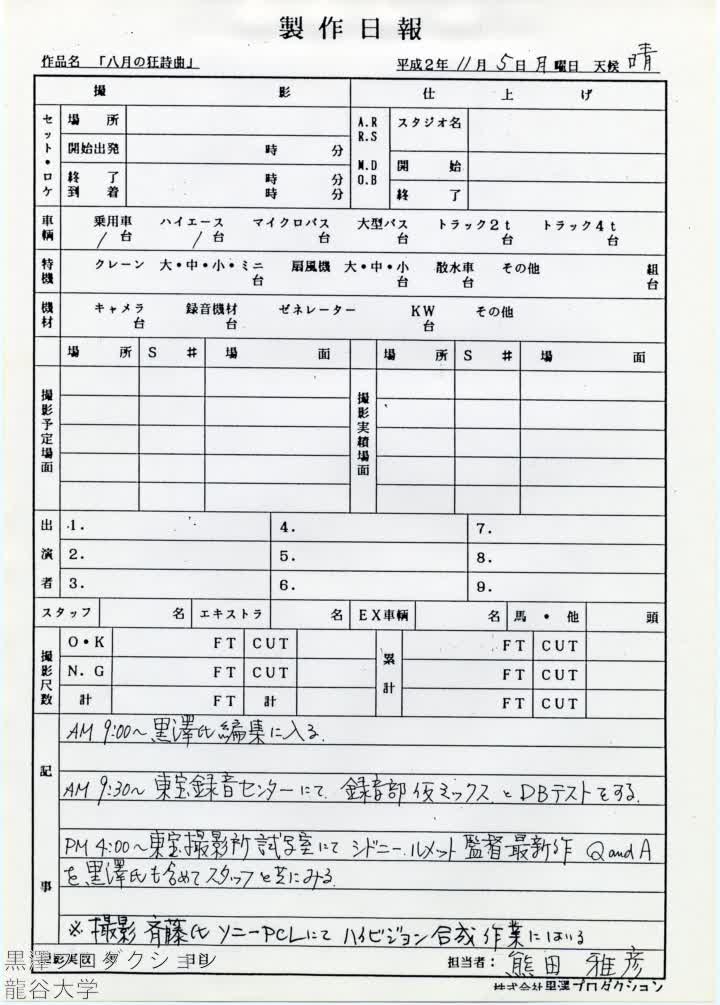 製作日報
作品名 「八月の狂詩曲」 平成2年 11月 5日 月曜日 天候 晴
撮 影 仕 上 げ
セット・ロケ 場 所 A.R R.S M.D O.B スタジオ名
開始出発 時 分 開 始
終 了 時 分
到 着 時 分 終 了
車輌 乗用車 ハイエース マイクロバス 大型バス トラック2t トラック4t
/台 /台 台 台 台 台
特機 クレーン 大・中・小・ミニ 扇風機 大・中・小 散水車 その他 組
台 台 台 台
機材 キャメラ 録音機材 ゼネレーター KW その他
台 台 台
場 所 S # 場 面 場 所 S # 場 面
撮影予定場面 撮影実績場面
出演者 1. 4. 7.
2. 5. 8.
3. 6. 9.
スタッフ 名 エキストラ 名 EX車輌 名 馬・他 頭
撮影尺数 O・K FT CUT 累計 FT CUT
N.G FT CUT FT CUT
計 FT 計 FT CUT
記事
AM 9:00〜黒澤氏編集に入る.
AM 9:30〜東宝録音センターにて、録音部仮ミックス、とDBテストをする.
PM 4:00〜東宝撮影所試写室にて シドニー.ルメット監督最新作 Q and A
を、黒澤氏も含めてスタッフと共にみる.
※撮影 斉藤氏 ソニーPCLにてハイビジョン合成作業にはいる
担当者: 熊田 雅彦
株式会社黒澤プロダクション
龍谷大学